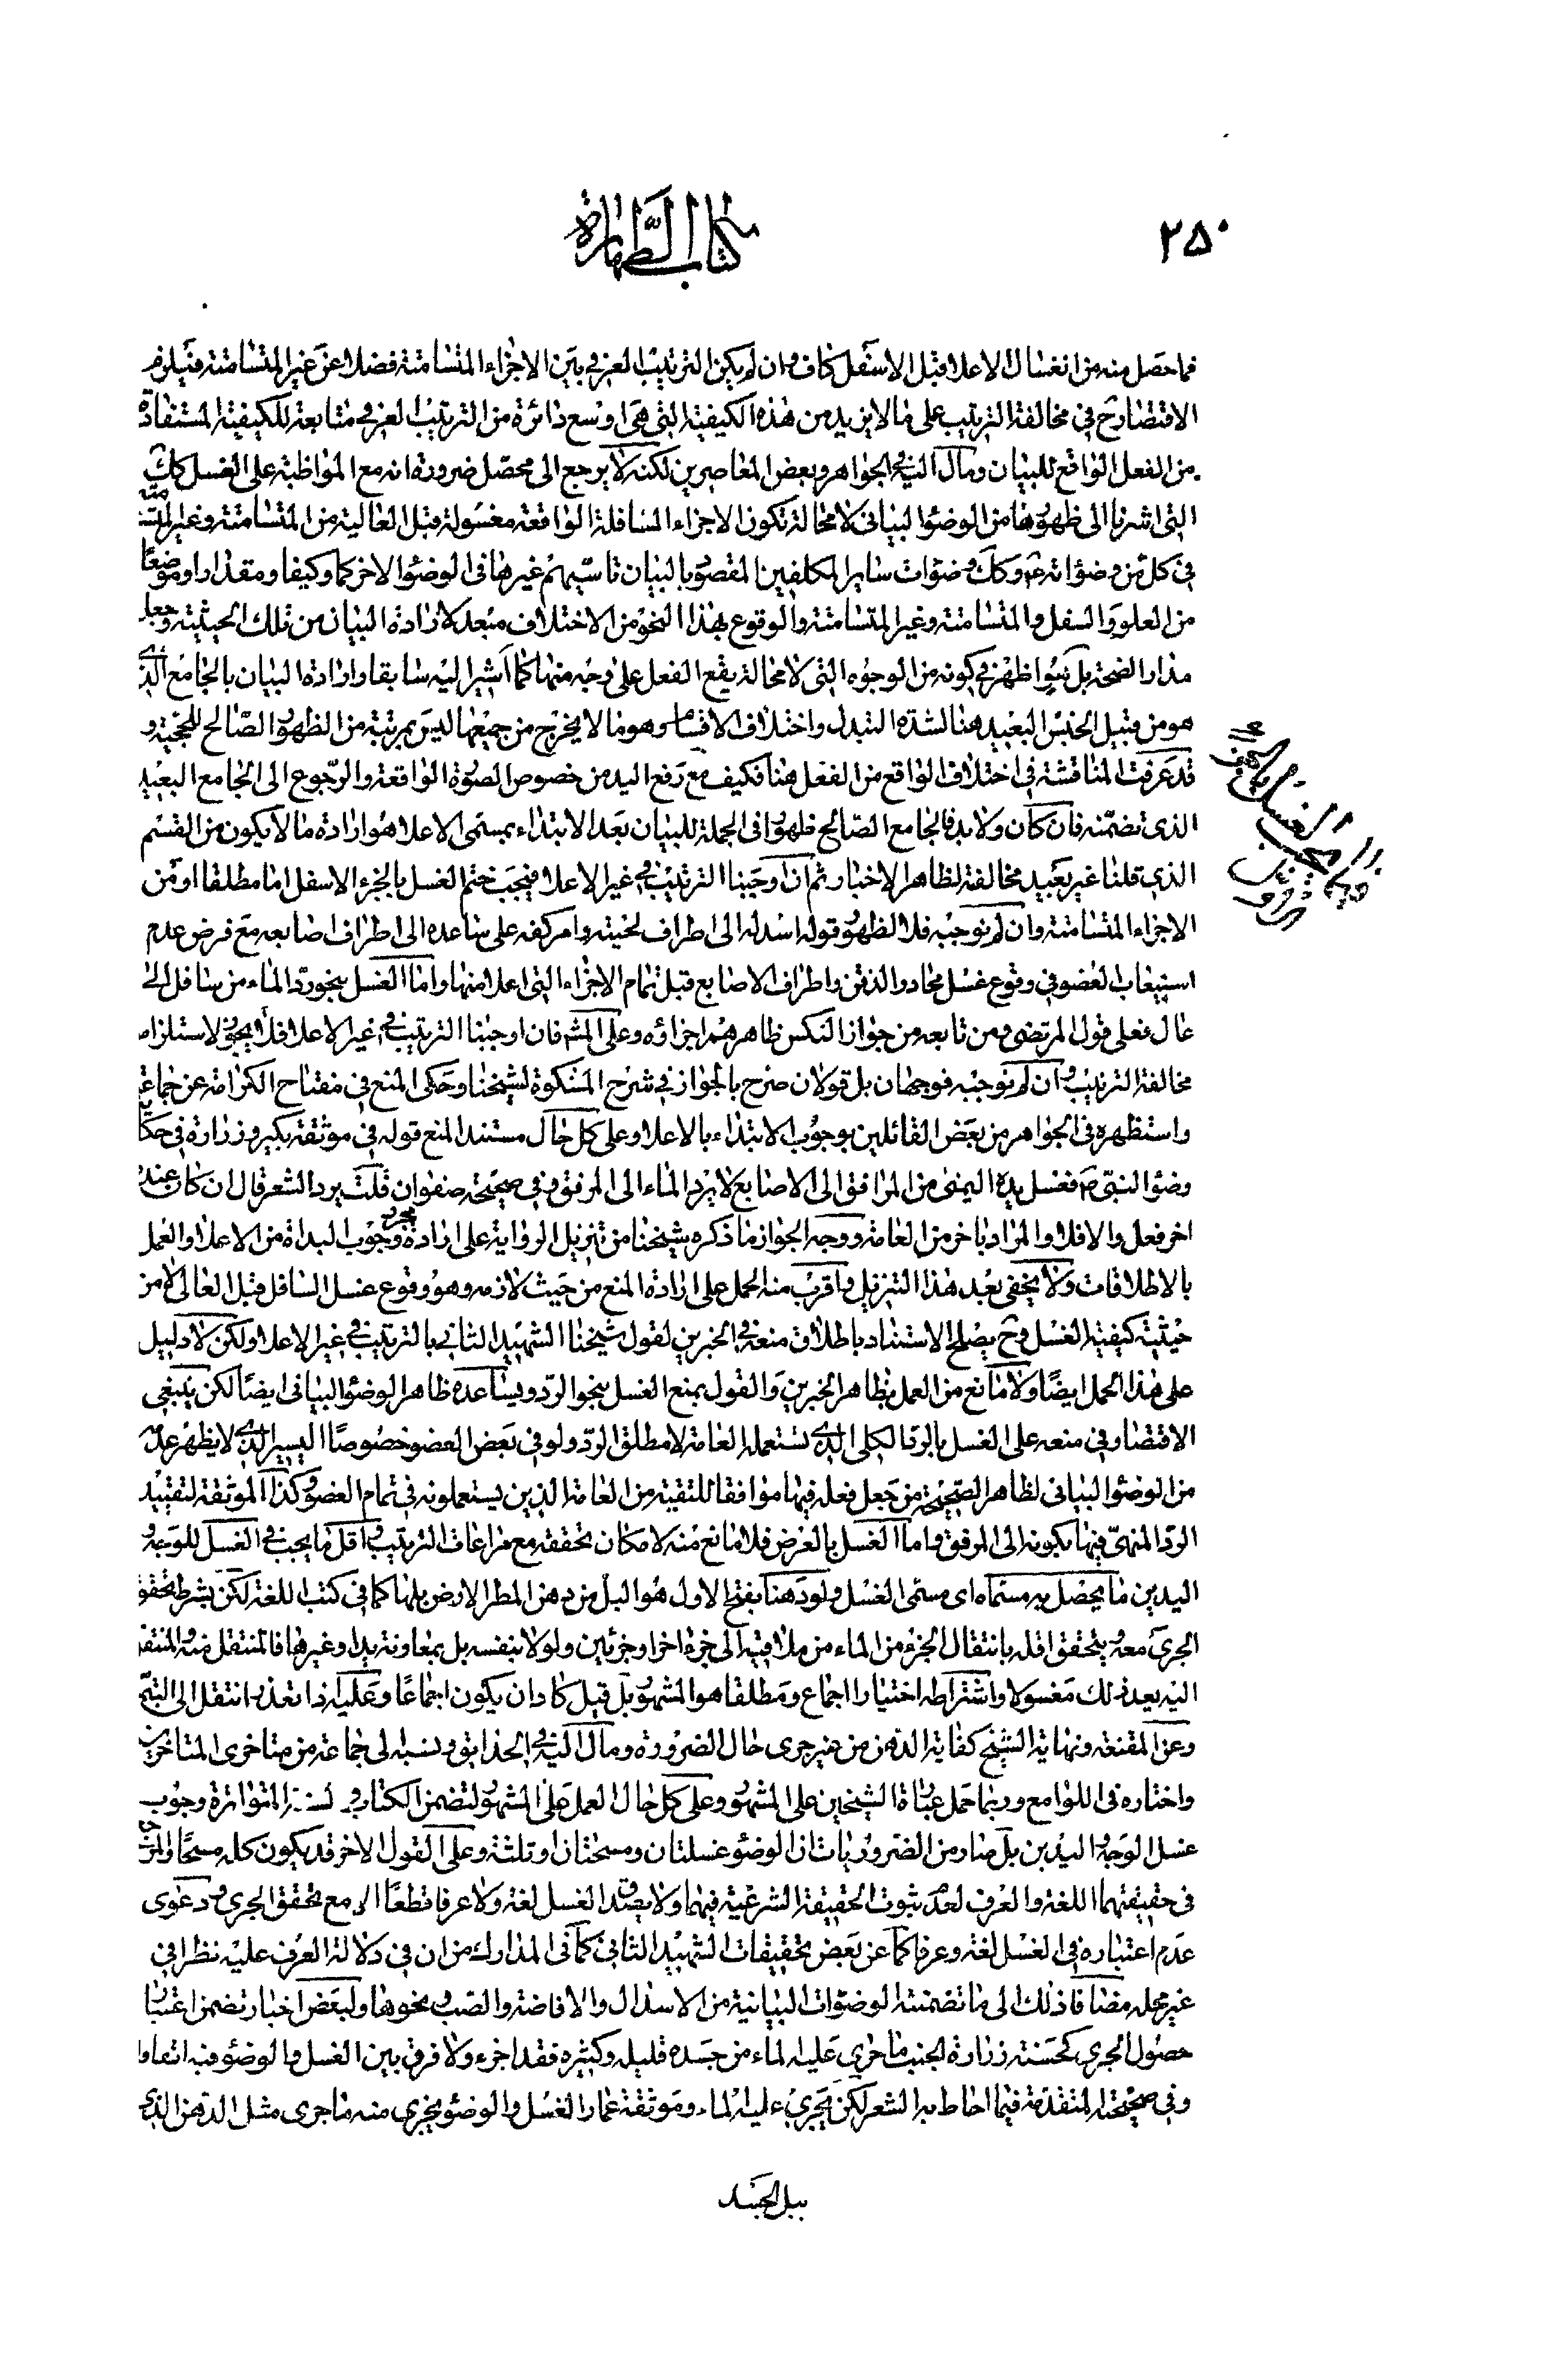 ٢٥٠
كتاب الطهارة
فما حصل منه من انغسال الاعلا قبل الاسفل كاف وان لم يكن الترتيب العرفي بين الاجزاء المتسامتة فضلا عن غير المتسامتة فيلزم
الاقتصار ح في مخالفة الترتيب على ما لا يزيد من هذه الكيفية التي هي اوسع دائرة من الترتيب العرفي متابعة للكيفية المستفادة
من الفعل الواقع للبيان ومال اليه في الجواهر وبعض المعاصرين لكنه لا يرجع الى محصل ضرورة انه مع المواظبة على الغسل كك
التي اشرنا الى ظهورها من الوضوء البياني لا محالة تكون الاجزاء السافلة الواقعة مغسولة قبل العالية من المتسامتة وغير المتسامتة
في كل من وضوءاته ع وكك وضوءات ساير المكلفين المقصود بالبيان تاسيهم غيرها في الوضوء الاخر كما وكيفا ومقدارا وموضعا
من العلو والسفل والمتسامتة وغير المتسامتة والوقوع بهذا النحو من الاختلاف مبعد لارادة البيان من تلك الحيثية وجعله
مدار الصحة بل هو اظهر في كونه من الوجوه التي لا محالة يقع الفعل على وجه منها كما اشير اليه سابقا وارادة البيان بالجامع الذي
هو من قبيل الجنس البعيد هنا لشدة التبدل واختلاف الاقسام وهو ما لا يخرج من جميعها ليس بمرتبة من الظهور الصالح للحجية و
قد عرفت المناقشة في اختلاف الواقع من الفعل هنا فكيف مع رفع اليد من خصوص الصورة الواقعة والرجوع الى الجامع البعيد
الذي تضمنه فان كان ولا بد فالجامع الصالح ظهورا في الجملة للبيان بعد الابتداء بمسمى الاعلا هو ارادة ما لا يكون من القسم
الذي قلنا غير بعيد مخالفة لظاهر الاخبار ثم ان اوجبنا الترتيب في غير الاعلا فيجب ختم الغسل بالجزء الاسفل اما مطلقا او من
الاجزاء المتسامتة وان لم نوجبه فلا لظهور قوله اسدله الى اطراف لحيته وامر كفه على ساعده الى اطراف اصابعه مع فرض عدم
استيعاب العضو في وقوع غسل محادر الذقن واطراف الاصابع قبل تمام الاجزاء التي اعلا منها واما الغسل بنحو رد الماء من سافل الى
عال فعلى قول المرتضى ومن تابعه من جواز النكس ظاهرهم اجزاؤه وعلى المش فان اوجبنا الترتيب في غير الاعلا فلا يجوز لاستلزامه
مخالفة الترتيب وان لم نوجبه فوجهان بل قولان صرح بالجواز في شرح المشكوة لشيخنا وحكى المنع في مفتاح الكرامة عن جماعة
واستظهره في الجواهر من بعض القائلين بوجوب الابتداء بالاعلا وعلى كل حال مستند المنع قوله في موثقة بكير وزرارة في حكاية
وضوء النبي ص فغسل يده اليمنى من المرافق الى الاصابع لا يرد الماء الى المرفق وفي صحيحة صفوان قلت يرد الشعر قال ان كان عنده
اخر فعل والا فلا والمراد باخر من العامة ووجه الجواز ما ذكره شيخنا من تنزيل الرواية على ارادة مجرد وجوب البداة من الاعلا والعمل
بالاطلاقات ولا يخفى بعد هذا التنزيل واقرب منه الحمل على ارادة المنع من حيث لازمه وهو وقوع غسل السافل قبل العالي لا من
حيثية كيفية الغسل وح يصلح الاستناد باطلاق منعه في الخبرين لقول شيخنا الشهيد الثاني بالترتيب في غير الاعلا ولكن لا دليل
على هذا الحمل ايضا ولا مانع من العمل بظاهر الخبرين والقول بمنع الغسل بنحو الرد ويساعده ظاهر الوضوء البياني ايضا لكن ينبغي
الاقتصار في منعه على الغسل بالرد الكلي الذي تستعمله العامة لا مطلق الرد ولو في بعض العضو خصوصا اليسير الذي لا يظهر عدمه
من الوضوء البياني لظاهر الصحيحة من جعل فعله فيها موافقا للتقية من العامة الذين يستعملونه في تمام العضو وكذا الموثقة لتقييد
الرد المنهي فيها بكونه الى المرفق واما الغسل بالعرض فلا مانع منه لامكان تحققه مع مراعات الترتيب واقل ما يجب في الغسل للوجه و
اليدين ما يحصل به مسماه اى مسمى الغسل ولو دهنا بفتح الاول هو البل من دهن المطر الارض بلها كما في كتب اللغة لكن بشرط تحقق
الجري معه ويتحقق اقله بانتقال الجزء من الماء من ملاقيه الى جزء اخر او جزئين ولو لا بنفسه بل بمعاونة يد او غيرها فالمنتقل منه والمنتقل
اليه يعد ذلك مغسولا واشتراطه اختيارا اجماع ومطلقا هو المشهور بل قيل كاد ان يكون اجماعا وعليه اذا تعذر انتقل الى التيمم
وعن المقنعة ونهاية الشيخ كفاية الدهن من غير جرى حال الضرورة ومال اليه في الحدايق ونسبه الى جماعة من متاخرى المتاخرين
واختاره في اللوامع وربما حمل عبارة الشيخين على المشهور وعلى كل حال العمل على المشهور لتضمن الكتاب والسنة المتواترة وجوب
غسل الوجه واليدين بل صار من الضروريات ان الوضوء غسلتان ومسحتان او ثلثة وعلى القول الاخر قد يكون كله مسحا والمرجع
في حقيقتهما اللغة والعرف لعدم ثبوت الحقيقة الشرعية فيهما ولا يصدق الغسل لغة ولا عرفا قطعا الا مع تحقق الجري ودعوى
عدم اعتباره في الغسل لغة وعرفا كما عن بعض تحقيقات الشهيد الثاني كما في المدارك من ان في دلالة العرف عليه نظرا في
غير محله مضافا ذلك الى ما تضمنته الوضوءات البيانية من الاسدال والافاضة والصب ونحوها ولبعض اخبار تضمن اعتبار
حصول الجري كحسنة زرارة الجنب ما جرى عليه الماء من جسده قليله وكثيره فقد اجزءه ولا فرق بين الغسل والوضوء فيه اتفاقا
وفي صحيحته المتقدمة فيما احاط به الشعر لكن يجرى عليه الماء وموثقة عمار الغسل والوضوء يجزي منه ما جرى مثل الدهن الذي
يبل الجسد